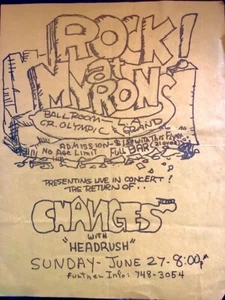 ROCK!
at
MYRONS
BALLROOM
CR. OLYMPIC & GRAND
ADMISSION - $1 with This Flyer
No AGE LIMIT FULL BARS 21 & over
PRESENTING LIVE IN CONCERT!
THE RETURN OF..
CHANGES
WITH
"HEADRUSH"
SUNDAY - JUNE 27 - 8:00
further Info: 748-3054